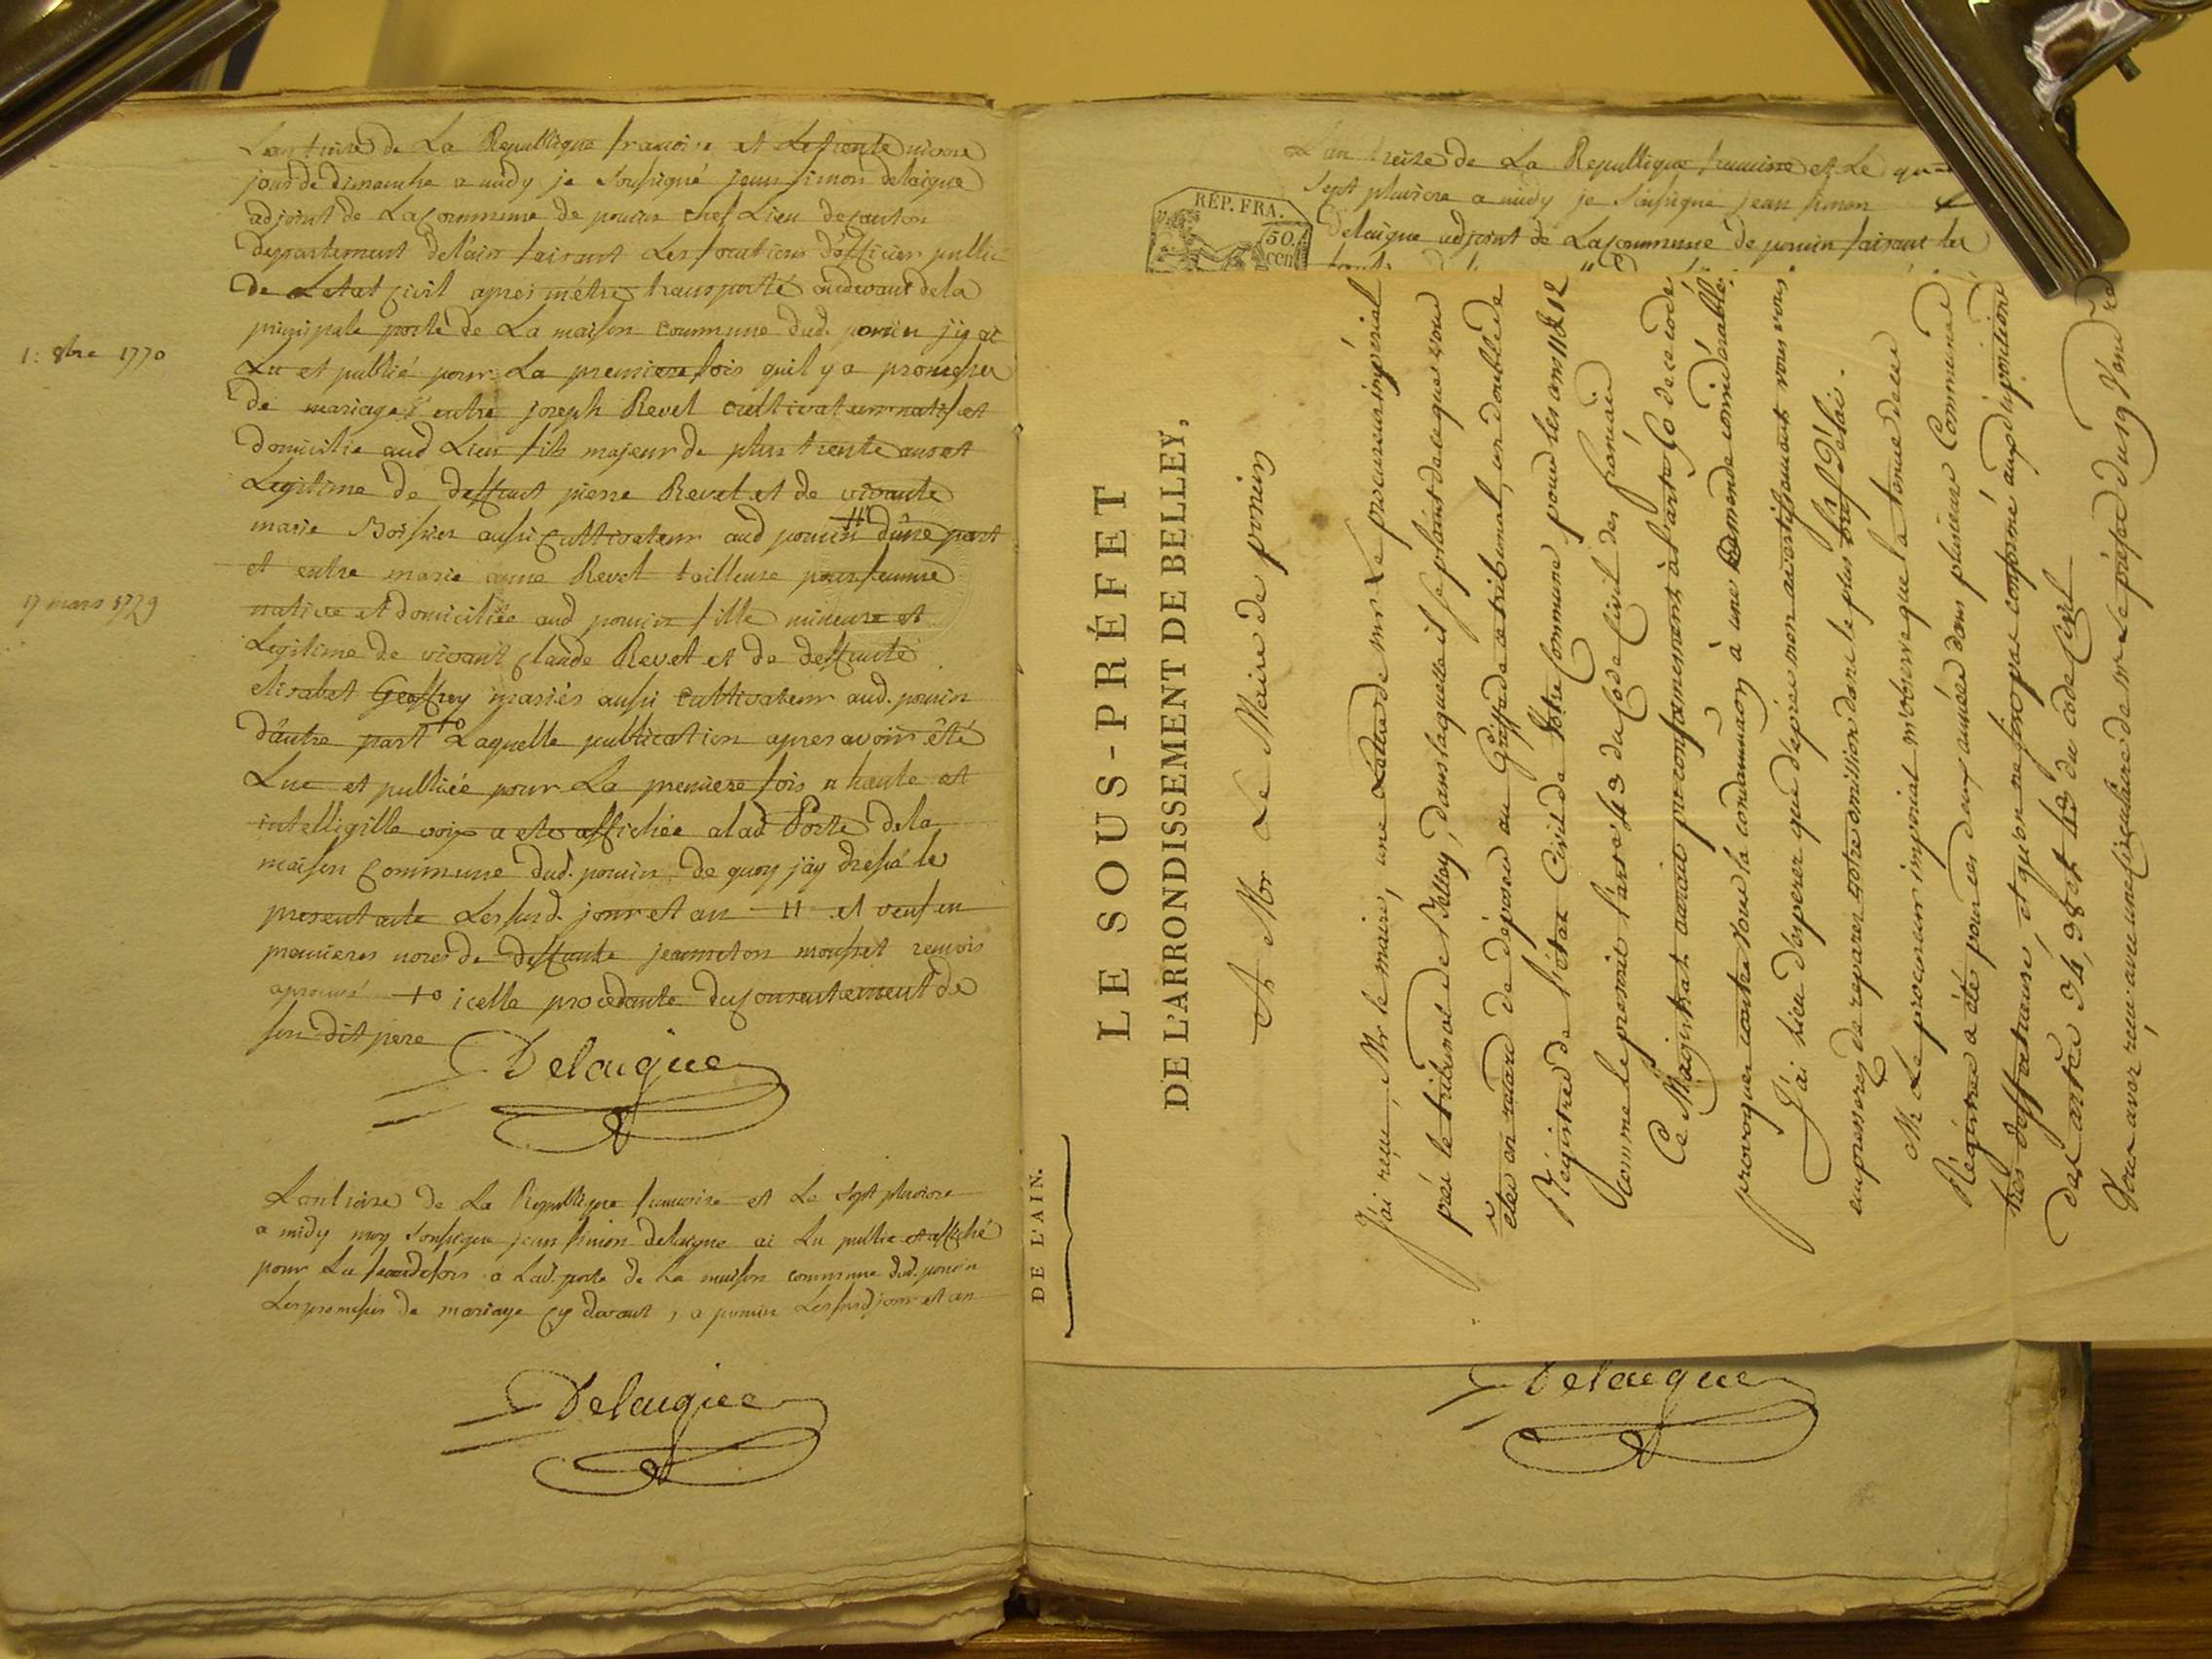 Lan treize de La Republique francoise et Le trente nivose
jour de dimanche a midy je soussigné jean simon delaigue
adjoint de La Commune de poncin chef Lieu de canton
departement delain faisant Les fonctions d'officier public
de Letat civil apres m'etre transporté au devant dela
principale porte de La maison commune dud. poncin j'y ai
Lu et publié pour La premiere fois quil y a promesses
de mariage entre joseph Revel cultivateur natif et
domicilie aud Lieu fils majeur de plus trente ans et
Legitime de deffunt pierre Revel et de vivante
marie Boissier aussi Cultivateur aud poncin d'une part
et entre marie anne Revel tailleuse pour femme
native et domiciliée aud poncin fille mineure et
Legitime de vivant Claude Revel et de deffunte
elisabet Geoffrey mariés aussi Cultivateur aud. poncin
d'autre part +o Laquelle publication apres avoir été
Lue et publiée pour La premiere fois a haute et
intelligille voix a eté affichée alad Porte dela
maison Commune dud. poncin de quoy j'ay dressé le
present acte Les susd. jour et an H et veuf en
premieres noces de deffunte jeanneton renvois
aprouvé +o icelle procedante du consentement de
son dit pere
Delaigue
1: 8bre 1770
17 mars 1779
Lan treize de La Republique francoise et Le sept pluviose
a midy moy soussigne jean simon delaigne ai Lu publié et affiché
pour La seconde fois a Lad. porte de La maison commune dud. poncin
Les promesses de mariage cy devant, a poncin Les susd jour et an
Delaigue
Lan treize de La Republique francoise et Le
sept pluviose a midy je soussigné jean simon
Delaigue adjoint de La Commune de poncin faisant les
RÉP. FRA.
50.
cen
Delaigue
DE L'AIN.
LE SOUS-PRÉFET
DE L'ARRONDISSEMENT DE BELLEY,
A Mr Le Maire de poncin
J'ai reçu, Mr le maire, une Lettre de mr Le procureur impérial
près le tribunal de Belley, dans laquelle il se plaint de ce que vous
êtes en retard de déposer au Greffe de ce tribunal, un double de
Régistres de l'état Civil de Vôtre Commune pour les ans 11 & 12
comme le prescrit l'article 43 du Code Civil des français
Ce Magistrat auroit pu conformement à l'article 50 de ce code
provoquer contre vous la condamnation à une amende considérable;
J'ai lieu d'esperer que d'après mon avertissement vous vous
empresserez de reparer votre omission dans le plus bref Délai.
Mr Le procureur imperial m'observe que la tenue de ces
Régistres a été pour ces deux années dans plusieurs Communes
très deffectueuse, et qu'on ne s'est pas conformé aux dispositions
des articles 34, 38 et 42 du code Civil
Vous avez reçu avec une Circulaire de mr Le préfet du 19 Vend.re